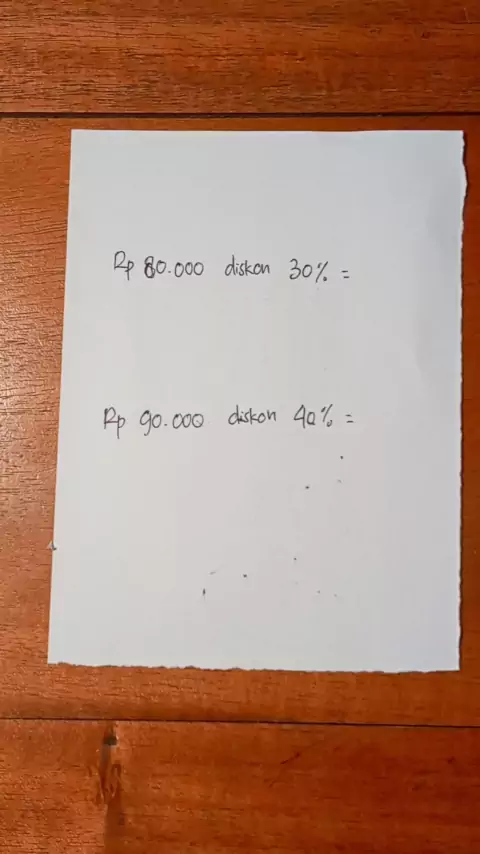 Rp 80.000 diskon 30% =
Rp 90.000 diskon 40% =